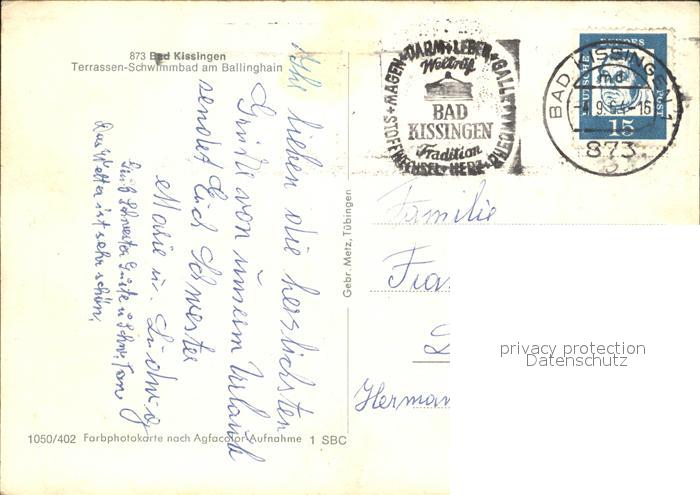 873 Bad Kissingen
Terrassen-Schwimmbad am Ballinghain
Ihr lieben die herzlichsten
Grüße von unserm Urlaub
sendet Euch Schwester
Marie u. Ludwig
Gruß Schwester Guste u Schw.
Das Wetter ist sehr schön.
1050/402 Farbphotokarte nach Agfacolor-Aufnahme 1 SBC
Gebr. Metz, Tübingen
MAGEN + DARM + LEBER + GALLE
STOFFWECHSEL + HERZ + RHEUMA
Weltruf
BAD
KISSINGEN
Tradition
BAD KISSINGEN 1
md
-15
873
DEUTSCHE BUNDESPOST
15
Familie
Hermann
privacy protection
Datenschutz